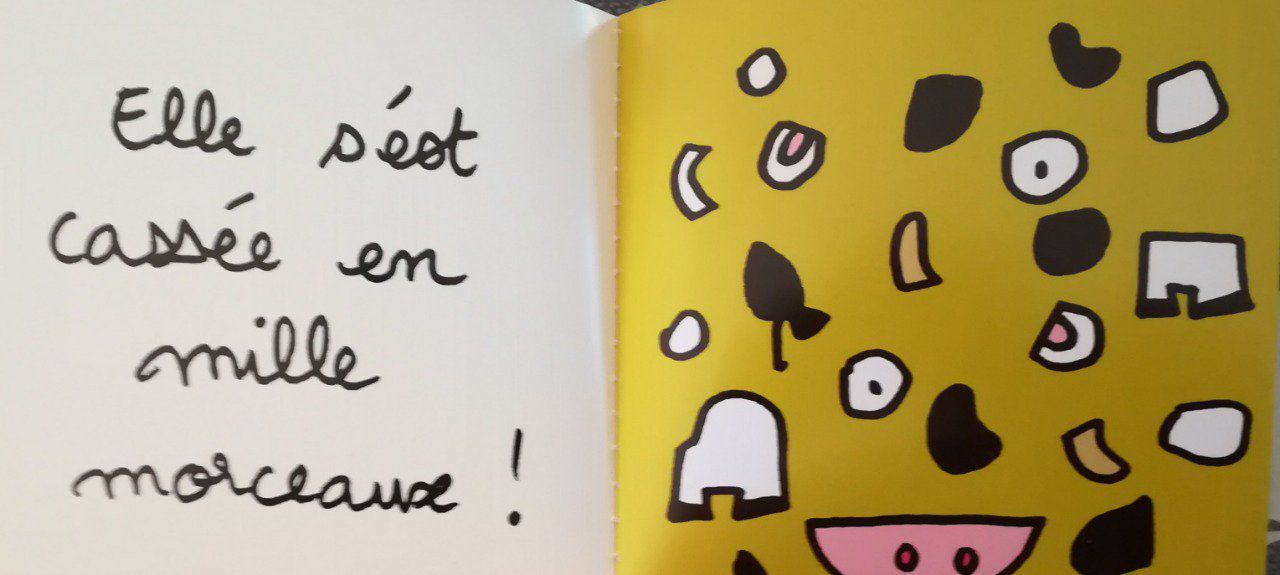 Elle s'est
cassée en
mille
morceaux !